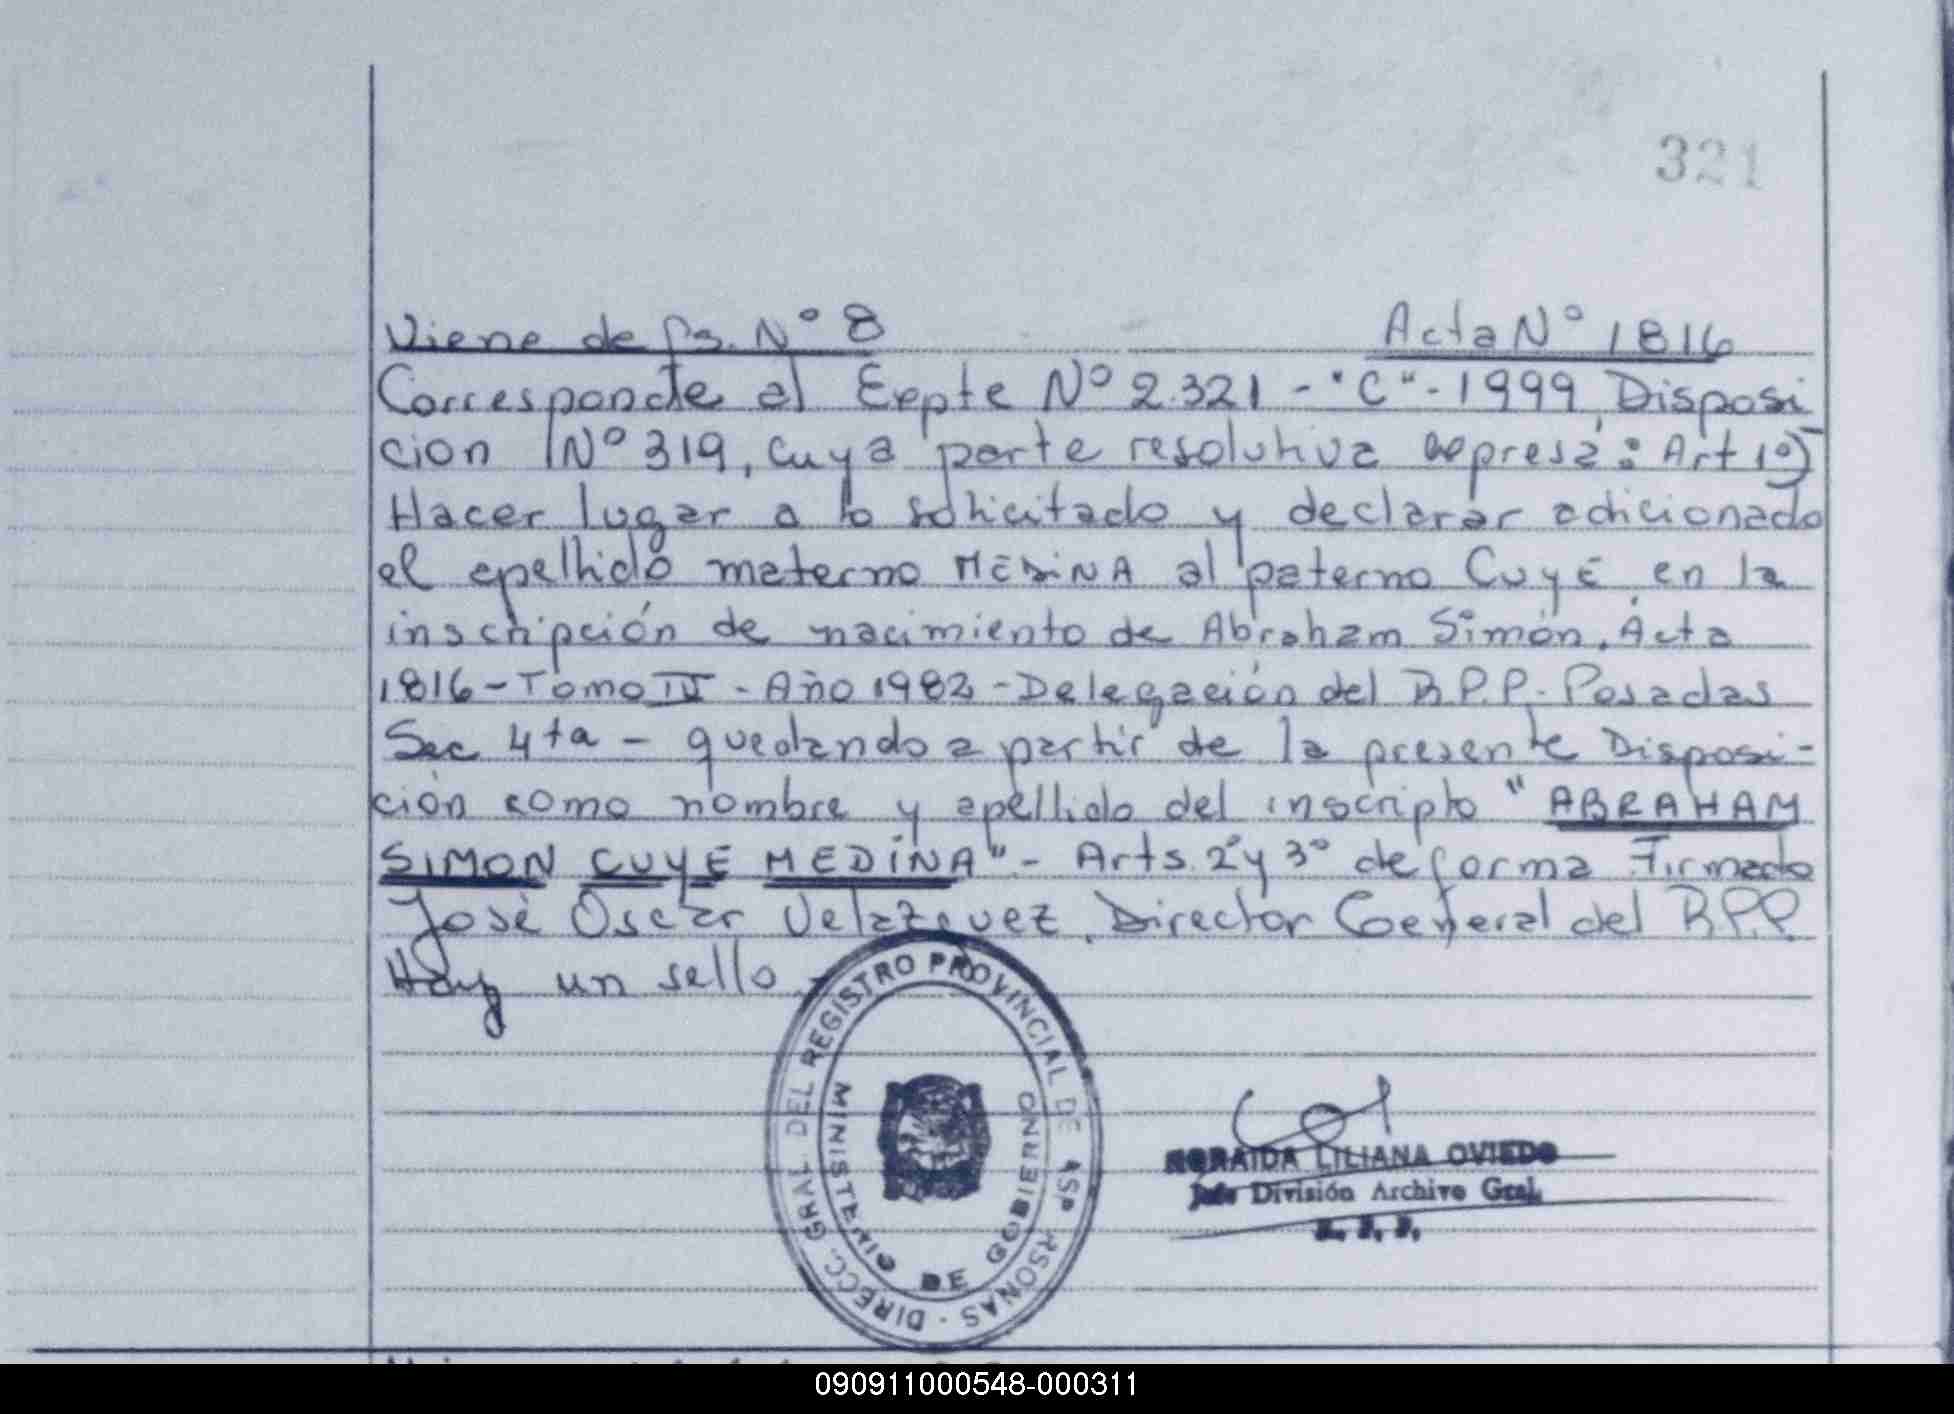 321
Viene de fs. Nº 8 Acta Nº 1816
Corresponde al Expte Nº 2.321 - "C" - 1999, Disposi
cion Nº 319, cuya parte resolutiva expresa: Art 1º)
Hacer lugar a lo solicitado y declarar adicionado
el apellido materno MEDiNA al paterno CuyE en la
inscripción de nacimiento de Abraham Simón, Acta
1816 - Tomo IV - Año 1982 - Delegación del R.P.P. Posadas
Sec 4ta - quedando a partir de la presente Disposi-
ción como nombre y apellido del inscripto "ABRAHAM
SIMON CUYE MEDINA" - Arts. 2º y 3º de forma Firmado
José Oscar Velazquez, Director General del R.P.P.
Hay un sello
DIRECC. GRAL. DEL REGISTRO PROVINCIAL DE
MINISTERIO DE GOBIERNO
NORAIDA LILIANA OVIEDO
Jefe División Archivo Gral.
R. P. P.
090911000548-000311